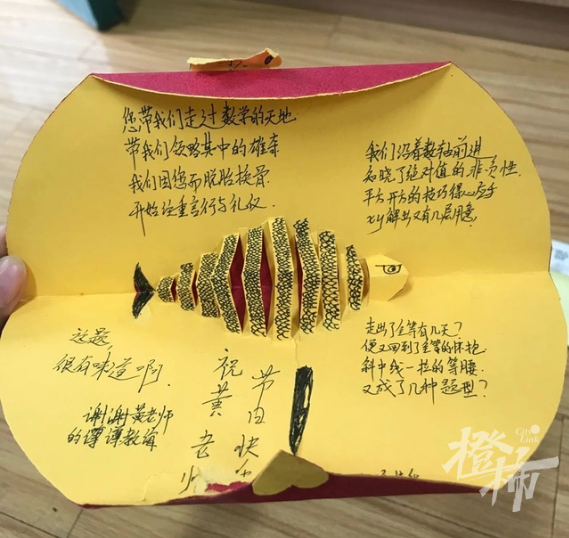 您带我们走过数学的天地
带我们领略其中的雄奇
我们因您而脱胎换骨
开始注重言行与礼仪
我们沿着数轴前进
知晓了绝对值的非负性
平方开方的技巧得心应手
xy解出又有几层用意
走出了全等有几天?
便又回到了全等的怀抱
斜中线一拉的等腰
又成了几种题型?
这题
很有味道啊
谢谢黄老师
的谆谆教诲
祝黄老师
节日快乐
橙柿